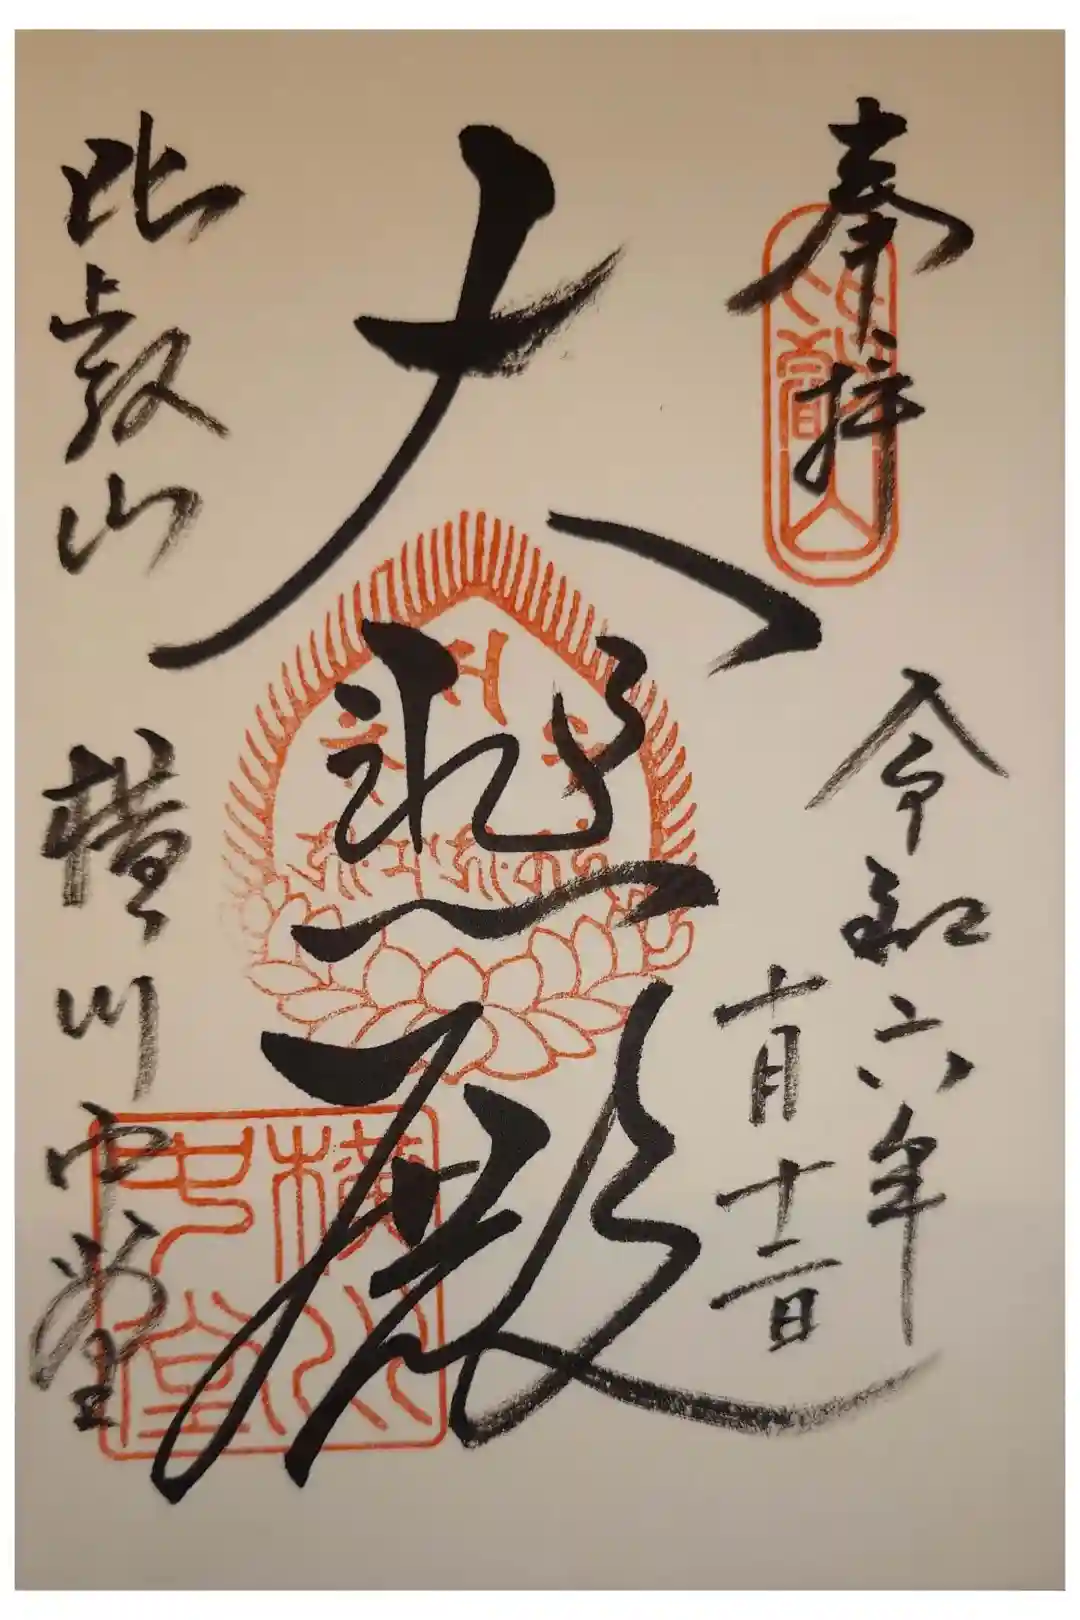 奉拝
令和六年
十月十三日
大悲殿
比叡山 横川中堂
横川
中堂